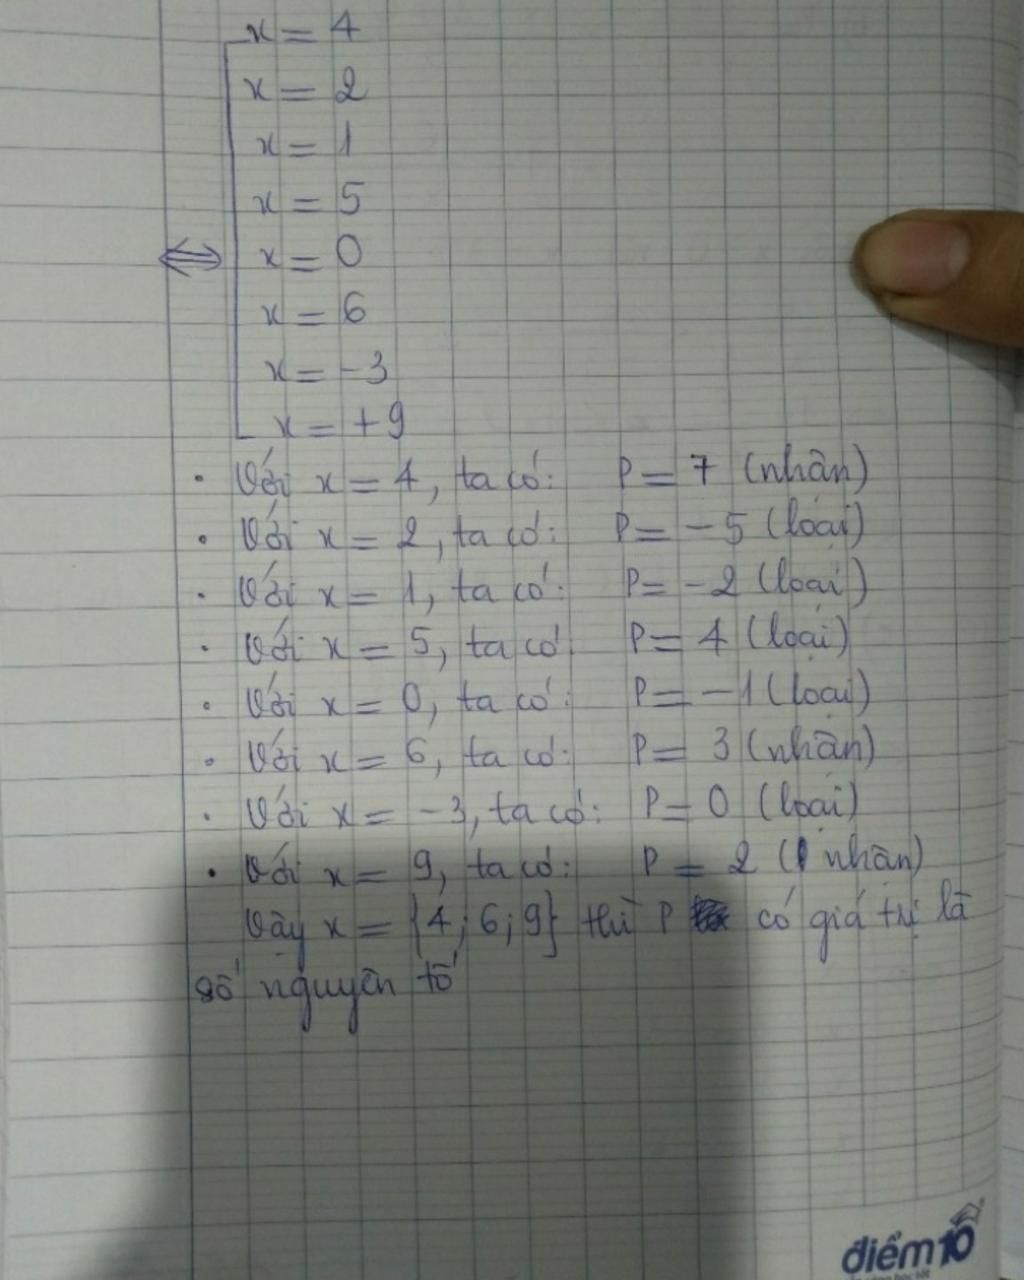 x = 4
x = 2
x = 1
x = 5
⇔ x = 0
x = 6
x = -3
x = +9
• Với x = 4, ta có: P = 7 (nhận)
• Với x = 2, ta có: P = -5 (loại)
• Với x = 1, ta có: P = -2 (loại)
• Với x = 5, ta có: P = 4 (loại)
• Với x = 0, ta có: P = -1 (loại)
• Với x = 6, ta có: P = 3 (nhận)
• Với x = -3, ta có: P = 0 (loại)
• Với x = 9, ta có: P = 2 (nhận)
Vậy x = {4; 6; 9} thì P có giá trị là
số nguyên tố
điểm10